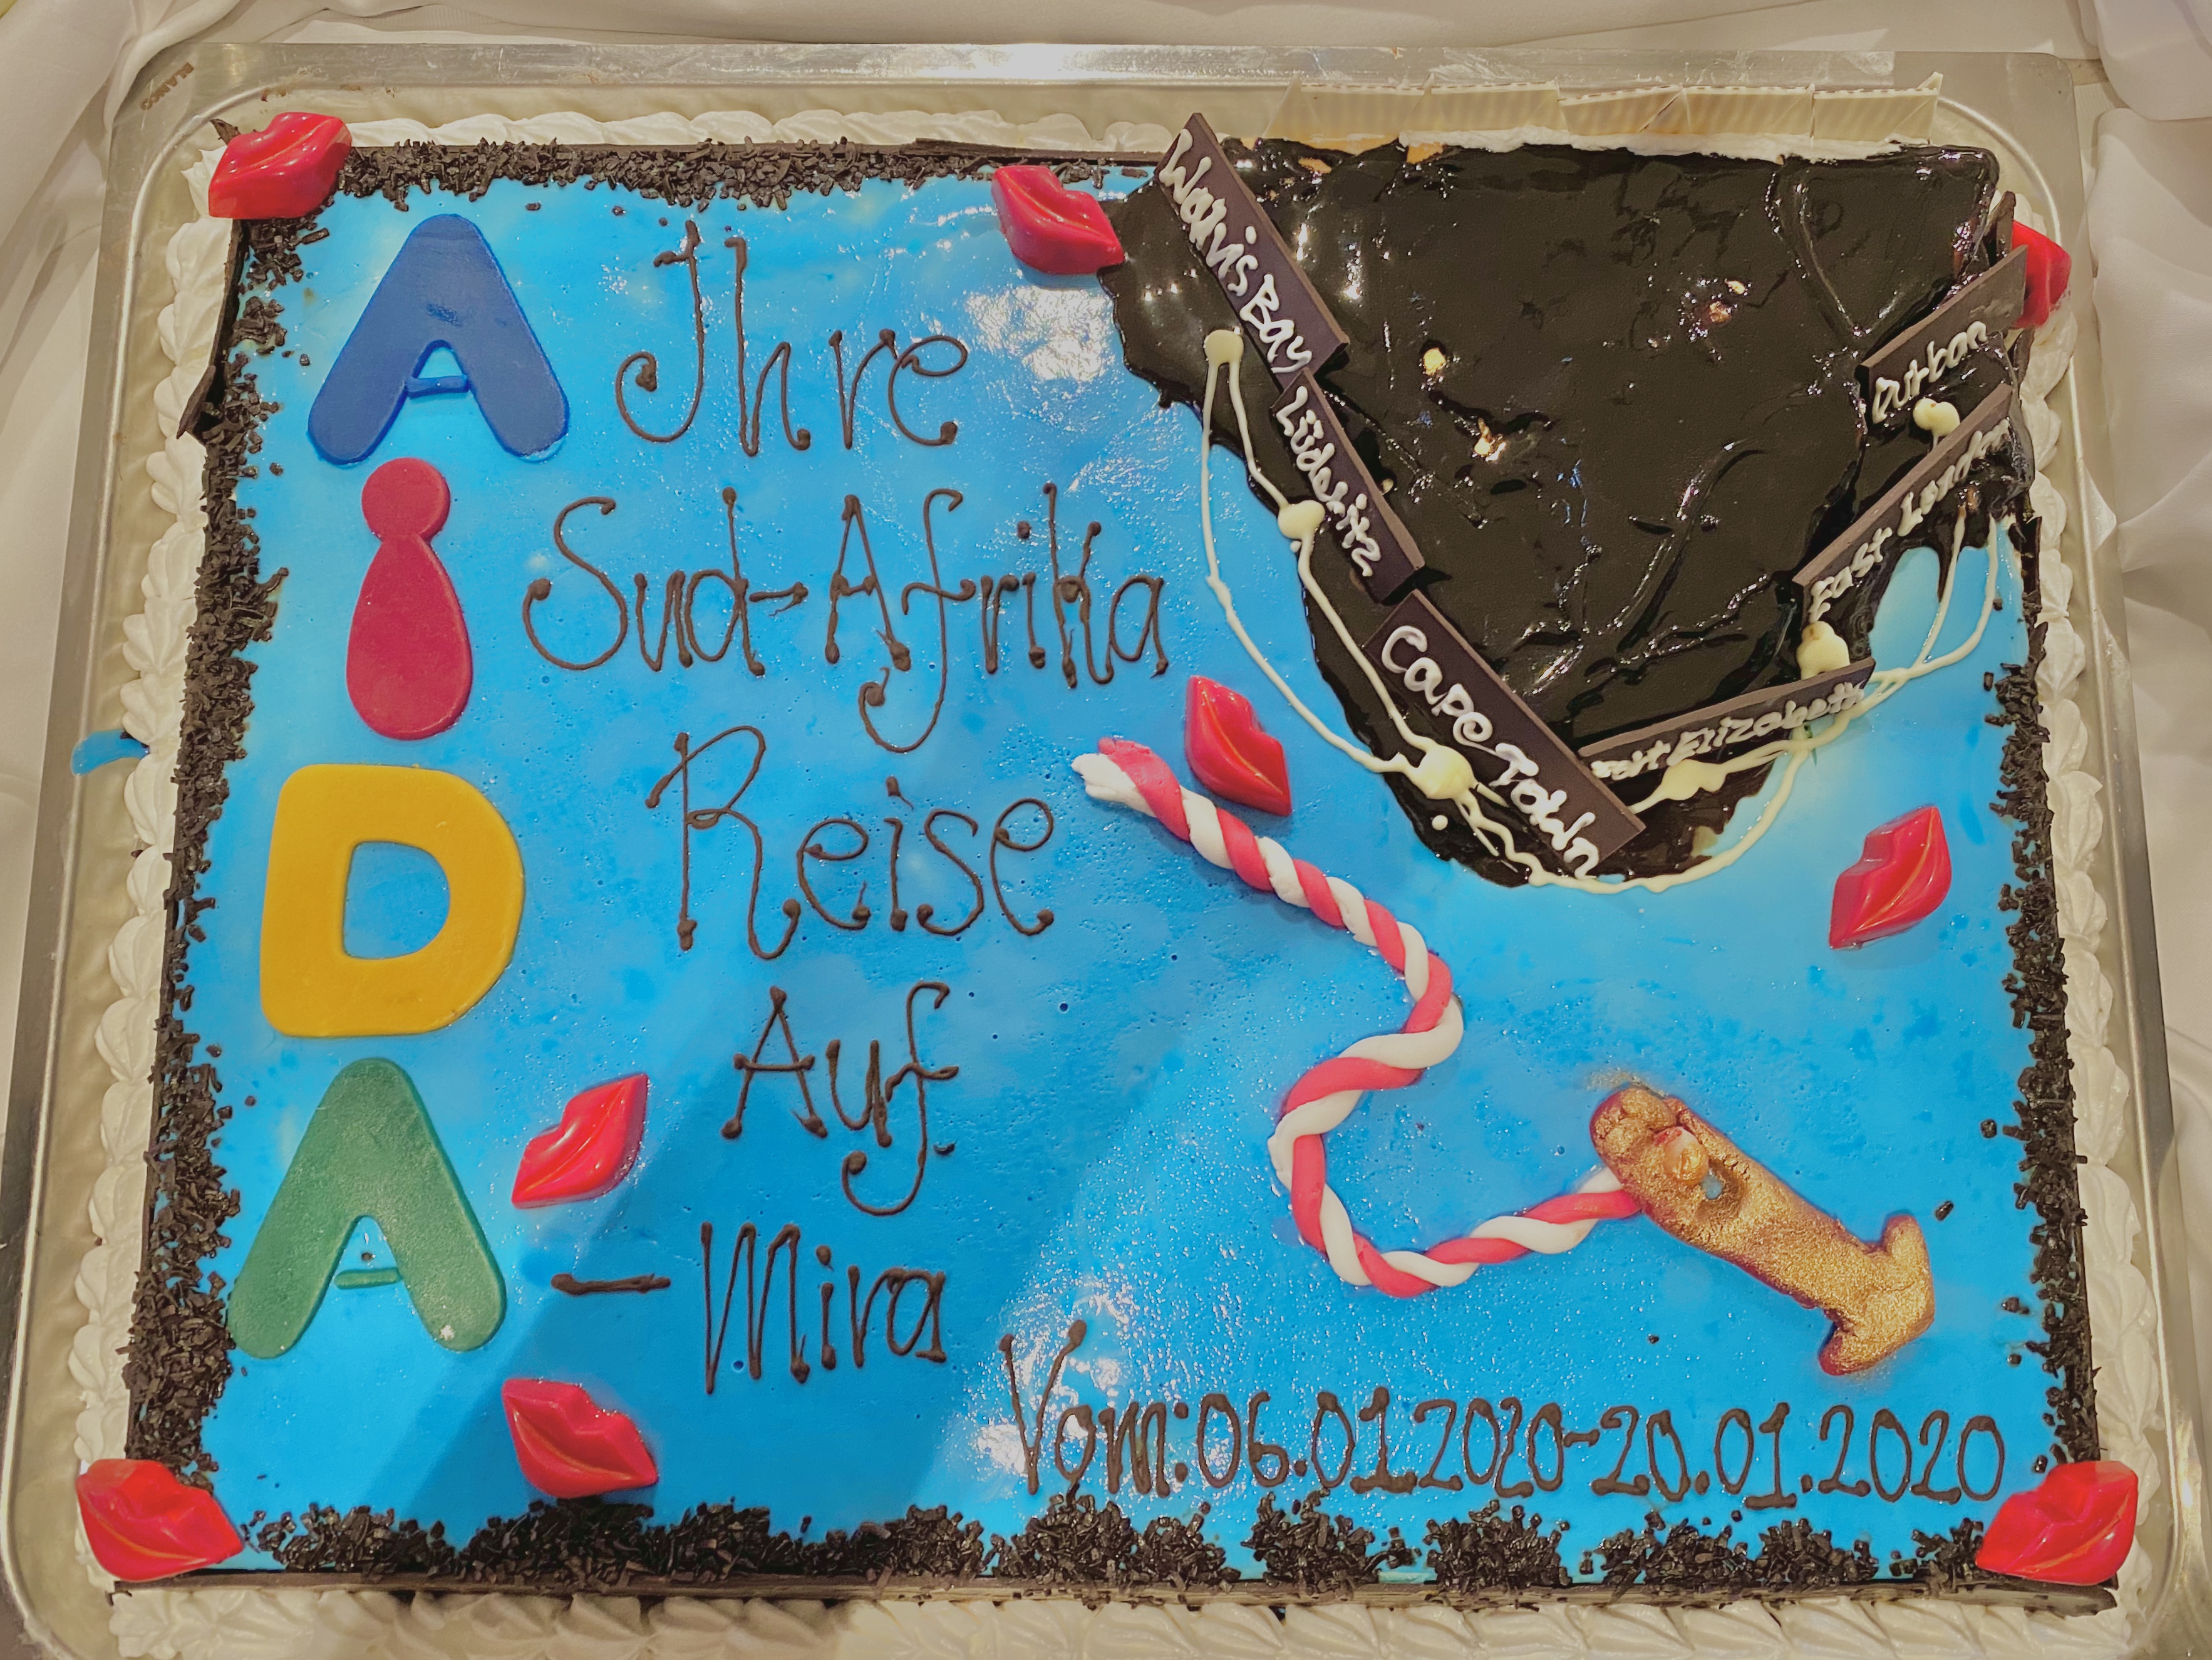 AiDA
Jhre
Sud-Afrika
Reise
Auf
-Mira
Vom:06.01.2020-20.01.2020
Walvis Bay
Lüderitz
Cape Town
Port Elizabeth
East London
Durban
BLANCO